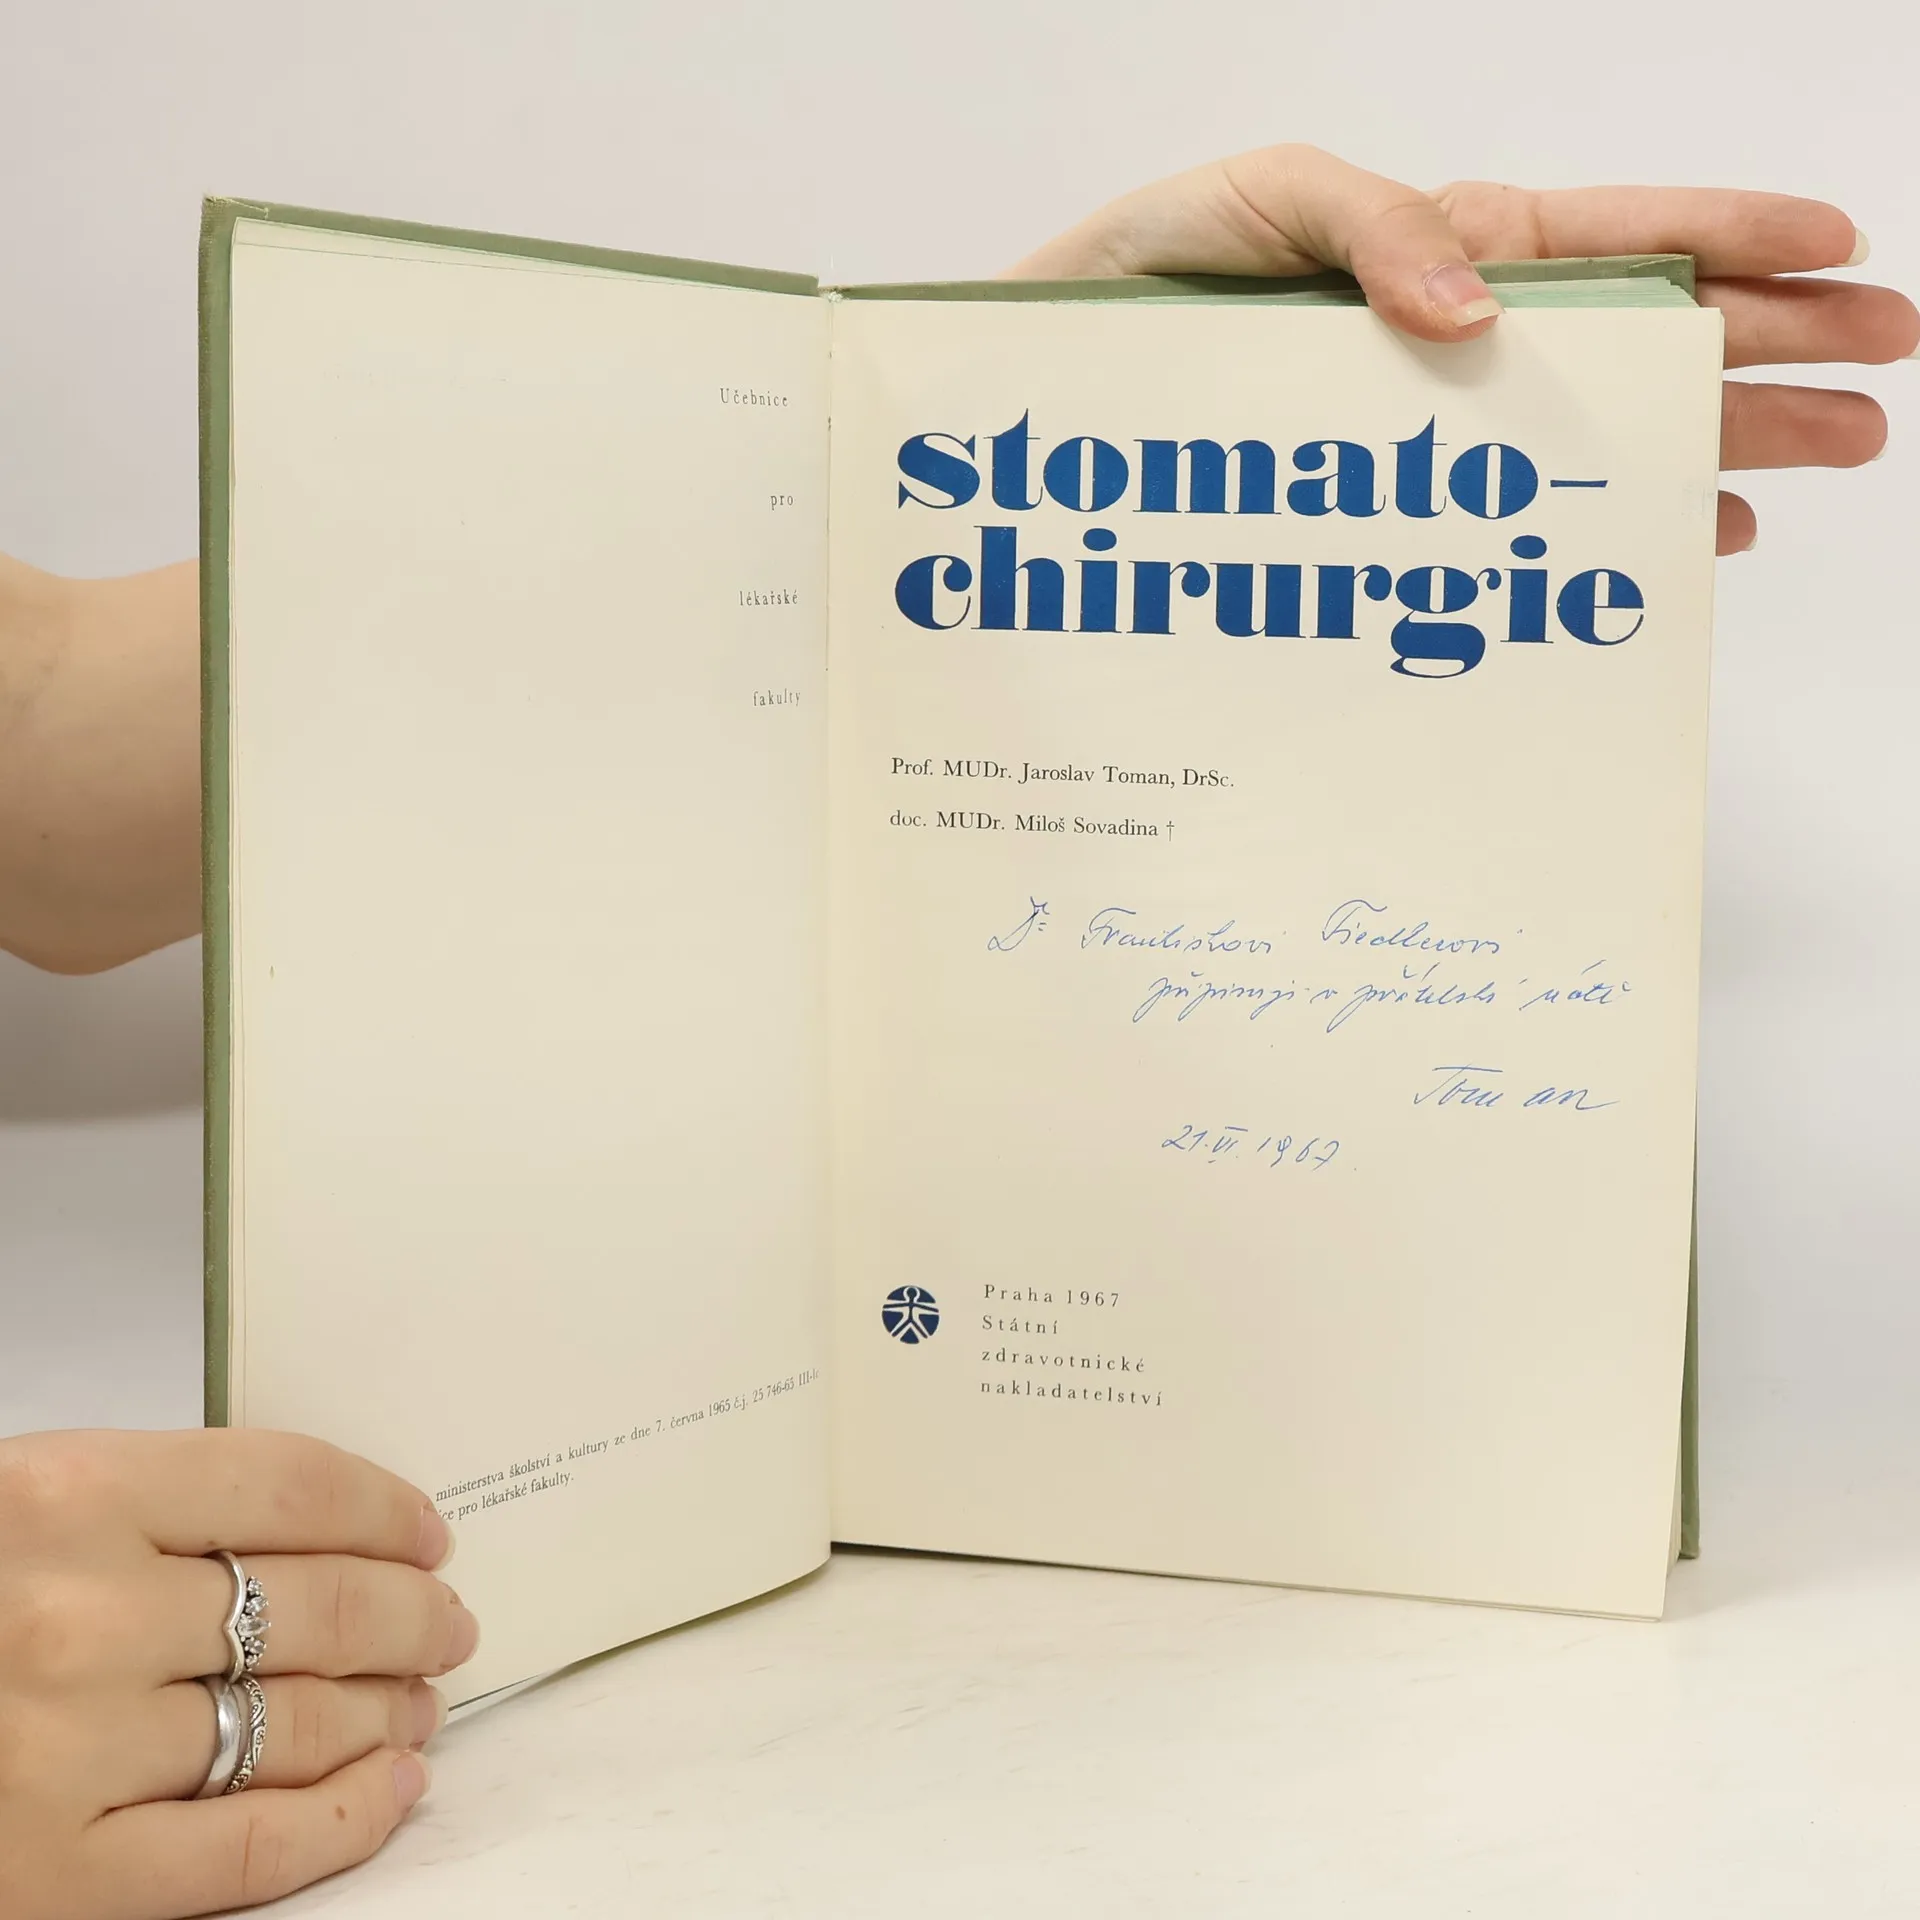 Učebnice
pro
lékařské
fakulty
ministerstva školství a kultury ze dne 7. června 1965 č.j. 25 746-65 III-
pro lékařské fakulty.
stomato-
chirurgie
Prof. MUDr. Jaroslav Toman, DrSc.
doc. MUDr. Miloš Sovadina †
Dr Františkovi Fiedlerovi
připisuji v přátelské úctě
Toman
21.VI.1967
Praha 1967
Státní
zdravotnické
nakladatelství